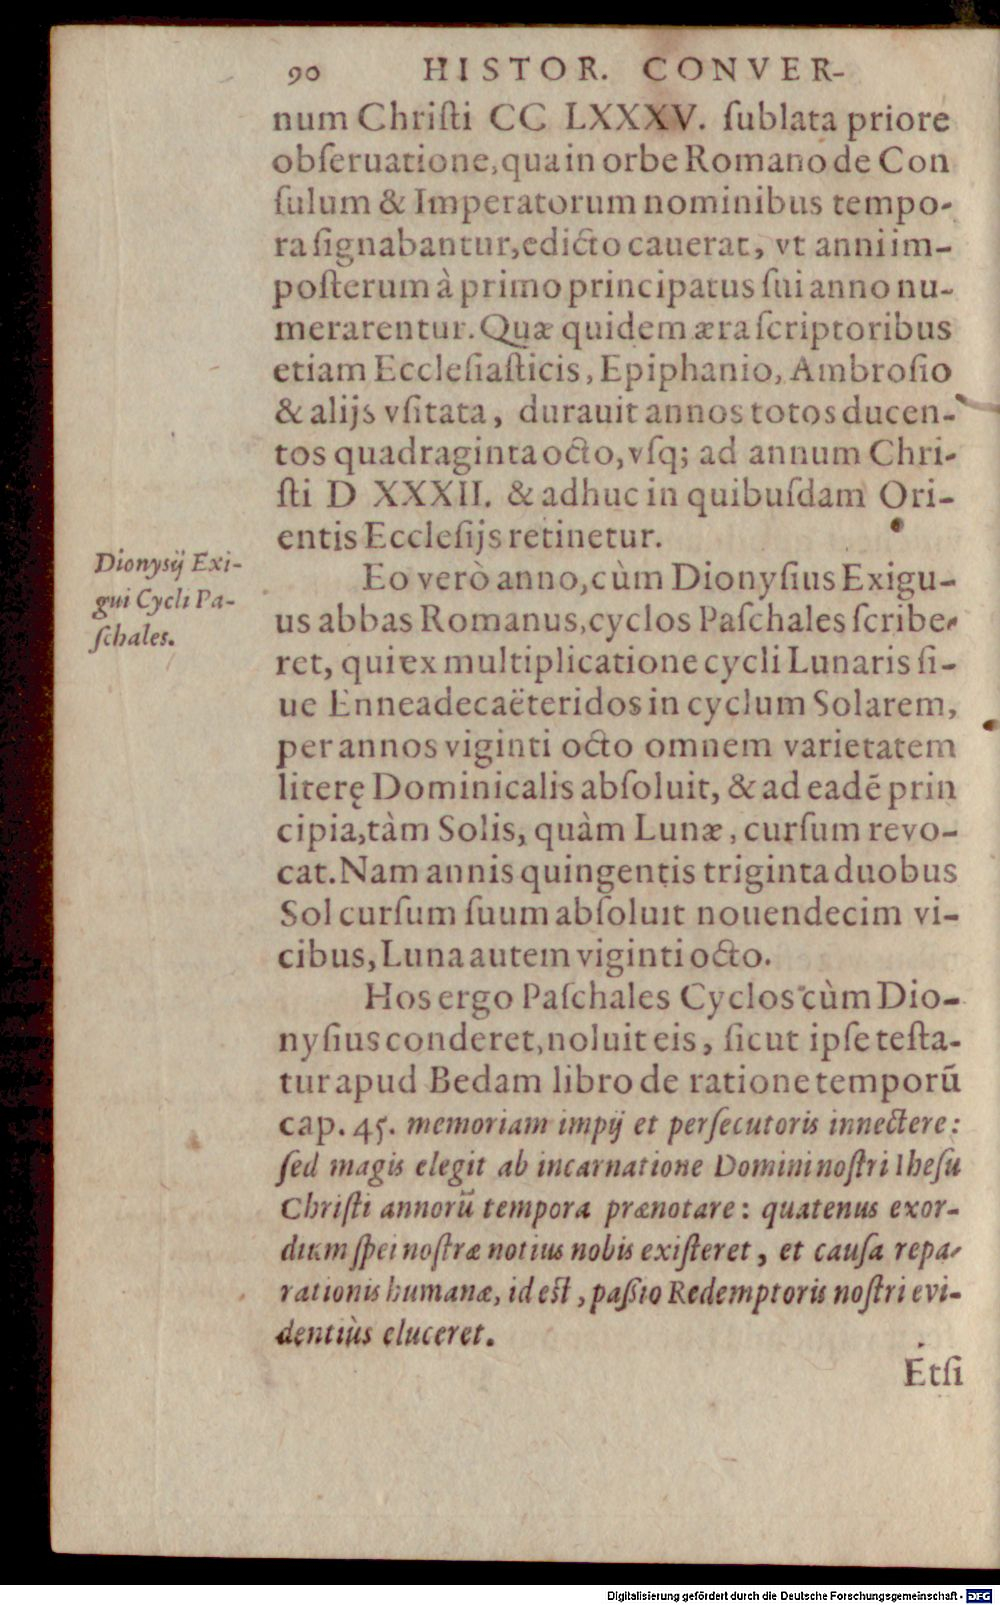 90 HISTOR. CONVER-
num Chriſti CC LXXXV. ſublata priore
obſeruatione, qua in orbe Romano de Con
ſulum & Imperatorum nominibus tempo-
ra ſignabantur, edicto cauerat, vt anni im-
poſterum à primo principatus ſui anno nu-
merarentur. Quæ quidem æra ſcriptoribus
etiam Eccleſiaſticis, Epiphanio, Ambroſio
& alijs vſitata, durauit annos totos ducen-
tos quadraginta octo, vſq; ad annum Chri-
ſti D XXXII. & adhuc in quibuſdam Ori-
entis Eccleſijs retinetur.
Dionysij Exi-
gui Cycli Pa-
ſchales.
Eo verò anno, cùm Dionyſius Exigu-
us abbas Romanus, cyclos Paſchales ſcribe-
ret, qui ex multiplicatione cycli Lunaris ſi-
ue Enneadecaëteridos in cyclum Solarem,
per annos viginti octo omnem varietatem
literę Dominicalis abſoluit, & ad eadē prin
cipia, tàm Solis, quàm Lunæ, curſum revo-
cat. Nam annis quingentis triginta duobus
Sol curſum ſuum abſoluit nouendecim vi-
cibus, Luna autem viginti octo.
Hos ergo Paſchales Cyclos cùm Dio-
nyſius conderet, noluit eis, ſicut ipſe teſta-
tur apud Bedam libro de ratione temporū
cap. 45. memoriam impij et perſecutoris innectere:
ſed magis elegit ab incarnatione Domini noſtri Iheſu
Chriſti annorū tempora prænotare: quatenus exor-
dium ſpei noſtræ notius nobis exiſteret, et cauſa repa-
rationis humanæ, id eſt, paſsio Redemptoris noſtri evi-
dentiùs eluceret.
Etſi
Digitalisierung gefördert durch die Deutsche Forschungsgemeinschaft - DFG